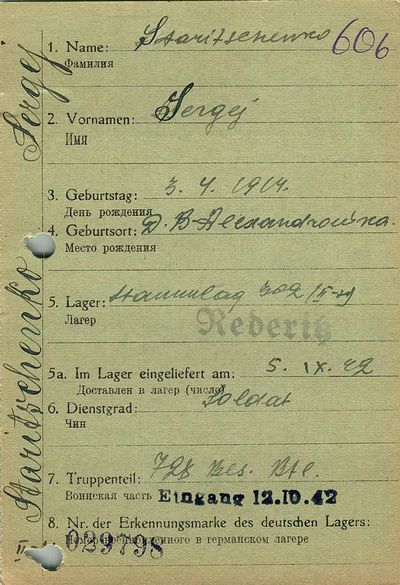 Staritschenko Sergej
1. Name: Staritschenko 606
Фамилия
2. Vornamen: Sergej
Имя
3. Geburtstag: 3. 4. 1914.
День рождения
4. Geburtsort: D. B-Alexandrowka.
Место рождения
5. Lager: Stammlag 302 (II-H)
Лагер
Rederitz
5a. Im Lager eingeliefert am: 5. IX. 42
Доставлен в лагер (число)
6. Dienstgrad: Soldat
Чин
7. Truppenteil: 728 Res. Btl.
Воинская часть Eingang 12.10.42
8. Nr. der Erkennungsmarke des deutschen Lagers:
II 029798
в германском лагере